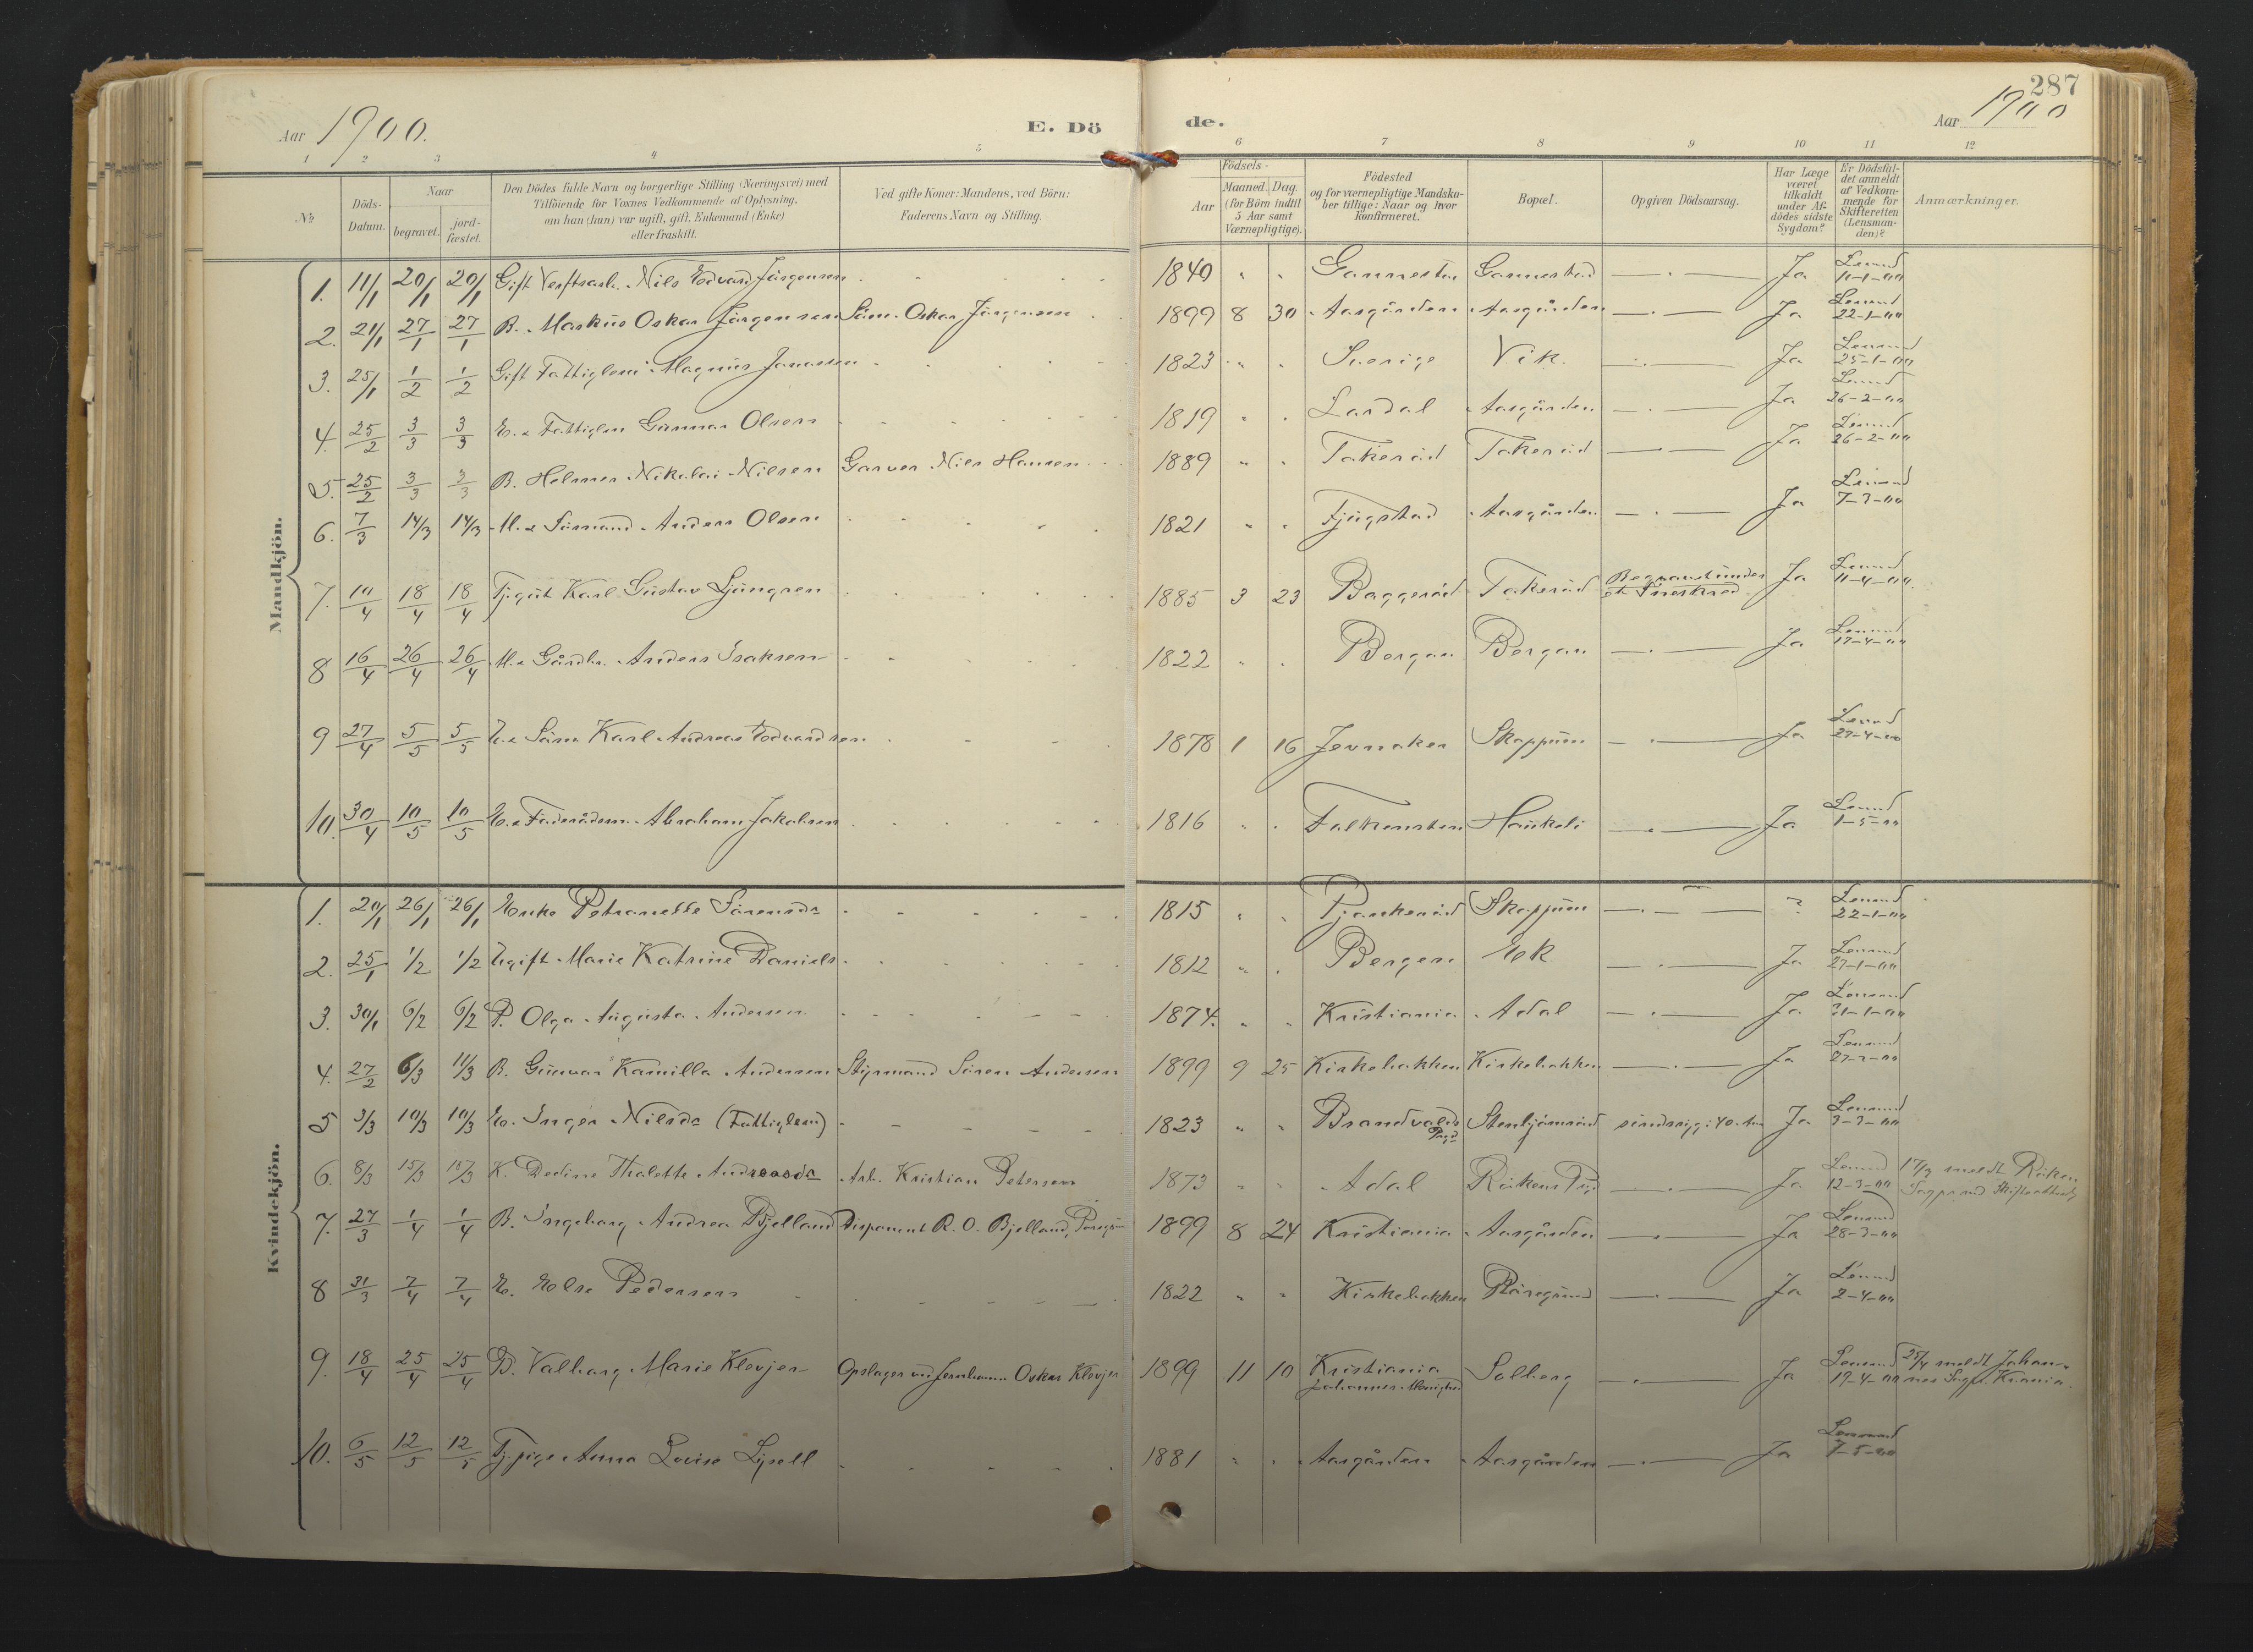 287
Aar 1900.
E. Dö
de.
Aar 1900
1 2 3 4 5
6 7 8 9 10 11 12
No
Döds-Datum.
Naar
begravet.
jord-fæstet.
Den Dödes fulde Navn og borgerlige Stilling (Næringsvei) med
Tilföiende for Voxnes Vedkommende af Oplysning,
om han (hun) var ugift, gift, Enkemand (Enke)
eller fraskilt.
Ved gifte Koner: Mandens, ved Börn:
Faderens Navn og Stilling.
Födsels-
Aar
Maaned. Dag.
(for Börn indtil
5 Aar samt
Værnepligtige).
Födested
og for værnepligtige Mandska-
ber tillige: Naar og hvor
Konfirmeret.
Bopæl.
Opgiven Dödsaarsag.
Har Læge
været
tilkaldt
under Af-
dödes sidste
Sygdom?
Er Dödsfal-
det anmeldt
af Vedkom-
mende for
Skifteretten
(Lensman-
den)?
Anmærkninger.
Mandkjön.
1. 11/1 20/1 20/1 Gift Verftsarb. Nils Edvard Jörgensen 1840 " " Gannestad Gannestad Ja Lensmd 11-1-00
2. 21/1 27/1 27/1 B. Markus Oskar Jörgensen Söm. Oskar Jörgensen 1899 8 30 Aasgården Aasgården Ja Lensmd 22-1-00
3. 25/1 1/2 1/2 Gift Fattiglem Magnus Jonassen 1823 " " Sverige Vik. Ja Lensmd 25-1-00
4. 25/2 3/3 3/3 E. Fattiglem Gunnar Olsen 1819 " " Lardal Aasgården Ja Lensmd 26-2-00
5. 25/2 3/3 3/3 B. Helmer Nikolai Nilsen Garver Nils Hansen 1889 " " Takeröd Takeröd Ja Lensmd 26-2-00
6. 7/3 14/3 14/3 Sömand Anders Olsen 1821 " " Fjugstad Aasgården Ja Lensmd 7-3-00
7. 10/4 18/4 18/4 Tj.gut Karl Gustav Ljungren 1885 3 23 Baggeröd Takeröd Begravet under et Sneskred Ja Lensmd 11-4-00.
8 16/4 26/4 26/4 Gårdbr. Anders Isaksen 1822 " " Borgen Borgen Ja Lensmd 17-4-00
9 27/4 5/5 5/5 U. Söm. Karl Andreas Edvardsen 1878 1 16 Jevnaker Skoppum Ja Lensmd 27-4-00
10. 30/4 10/5 10/5 E. Föderådsm. Abraham Jakobsen 1816 " " Falkensten Haukeli Ja Lensmd 1-5-00
Kvindekjön.
1. 20/1 26/1 26/1 Enke Petronelle Sörensdr 1815 " " Skoppum ? Lensmd 22-1-00
2. 25/1 1/2 1/2 Ugift Marie Katrine Daniels 1812 " " Bergen Ek Ja Lensmd 27-1-00
3. 30/1 6/2 6/2 P. Olga Augusta Andersen 1874. " " Kristiania Adal Ja Lensmd 31-1-00
4. 27/2 6/3 11/3 B. Gunvar Kamilla Andersen Styrmand Sören Andersen 1899 9 25 Kirkebakken Kirkebakken Ja Lensmd
5 3/3 10/3 10/3 E. Inger Nilsdr (Fattiglem) 1823 " " Brandvold Prgd sindssyg i 40 Aar Ja Lensmd 3-3-00
6. 8/3 15/3 K. Dedine Thalette Andreasdr Arb. Kristian Petersen 1873 " " Adal Röken Prgd Ja Lensmd 12-3-00 17/3 meldt Röken
7. 27/3 1/4 1/4 B. Ingeborg Andrea Bjelland Disponent R. O. Bjelland, 1899 8 24 Kristiania Aasgården Ja Lensmd 28-3-00
8 31/3 7/4 7/4 E. Else Pedersen 1822 " " Kirkebakken Ja Lensmd 2-4-00
9. 18/4 25/4 25/4 B. Valborg Marie Klevjer Opslager ved Jernbanen Oskar Klevjer 1899 11 10 Kristiania Johannes Menighed Solberg Ja Lensmd 19-4-00 25/4 meldt Johan-nes Sogn. Kr.ania.
10. 6/5 12/5 12/5 Tj.pige Anna Lovise Lysell 1881 " " Aasgården Aasgården Ja Lensmand 7-5-00